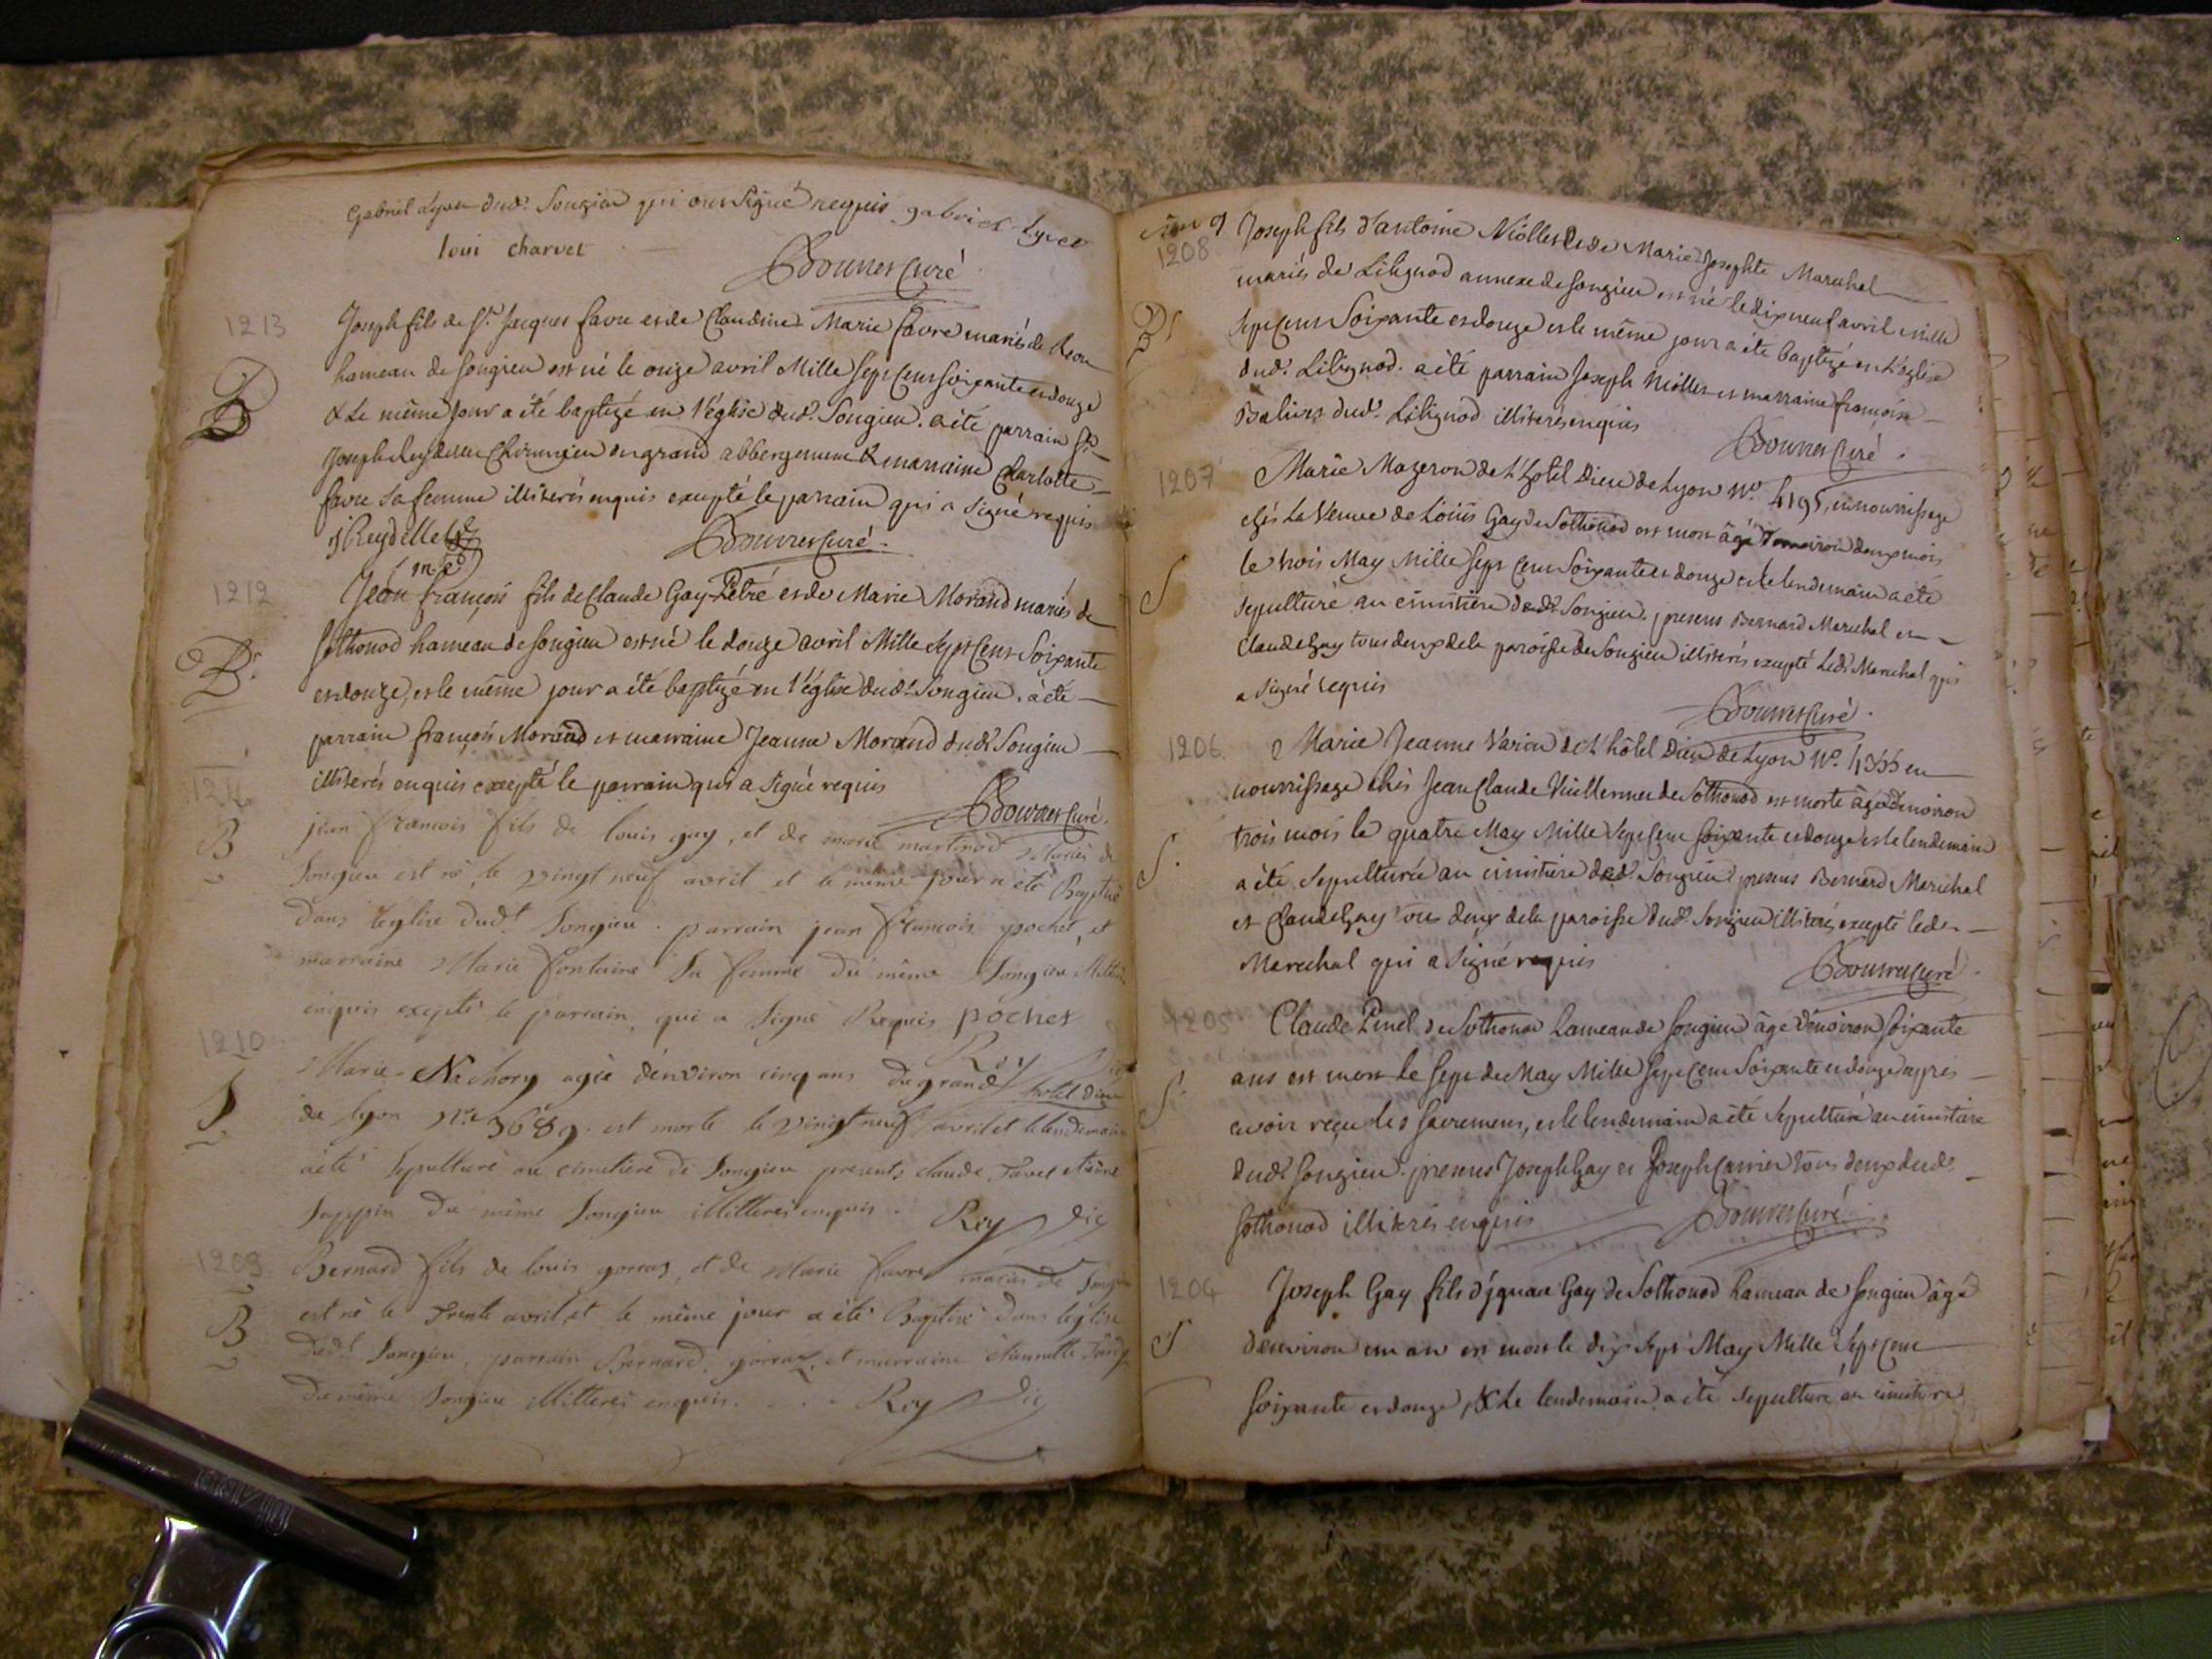 Gabriel Lyvet dud.t Songieu qui ont signé requis gabriel Lyvet
loui charvet
Bouvret Curé
1213
Joseph fils de S.r Jacques favre et de Claudine Marie favre mariés de
B
hameau de Songieu est né le onze avril Mille Sept Cent Soixante et douze
& Le même jour a été baptizé en l'église dud.t Songieu. a été parrain S.r
Joseph Reydellet Chirurgien du grand abbergement & marraine Charlotte
favre sa femme illiterés enquis excepté le parrain qui a signé requis
j Reydellet
Bouvret Curé
1212
Jean françois fils de Claude Gay-Pétré et de Marie Morand mariés de
Sothonod hameau de Songieu est né le douze avril Mille Sept Cent Soixante
B.
et douze, et le même jour a été baptizé en l'église dud.t Songieu. a été
parrain françois Morand et marraine Jeanne Morand dud.t Songieu
illiterés enquis excepté le parrain qui a signé requis
Bouvret Curé.
B
jean francois fils de louis gay, et de marie martinod Mariés de
Songieu est né le vingt neuf avril et le même jour a été Baptisé
dans leglise dud.t Songieu. parrain jean francois pochet, et
marraine Marie fontaine sa femme du même Songieu
enquis excepté le parrain, qui a signé Requis pochet
Rey
1210
Marie Nachory agée denviron cinq ans du grand hotel dieu
S
de lyon N.o 3689. est morte le vingt neuf avril et le lendemain
a été sepulturé au cimetiere de Songieu presents claude favre
du même Songieu illitterés enquis. Rey Vic
1209
Bernard fils de louis gorraz, et de Marie favre mariés de Songieu
est né le trente avril et le même jour a été Baptisé dans leglise
B
dud.t Songieu, parrain Bernard gorraz, et marraine
du même Songieu illitterés enquis. Rey Vic
1208
Joseph fils d'antoine Niollet et de Marie Josephte Marechal
mariés de Lilignod annexe de Songieu est né le dix neuf avril Mille
B
Sept Cent Soixante et douze et le même jour a été baptizé en l'église
dud.t Lilignod. a été parrain Joseph Niollet et marraine françoise
dud.t Lilignod illiterés enquis
Bouvret Curé.
1207
Marie Mazeron de l'hotel Dieu de Lyon N.o 4195, en nourrissage
chés La Veuve de Loüis Gay de Sothonod est mort âgé d'environ deux mois
S
le trois May Mille Sept Cent Soixante et douze et le lendemain a été
sepulturé au cimitière dud.t Songieu. presens Bernard Marechal et
Claude Gay tous deux de la paroisse de Songieu illiterés excepté led.t Marechal qui
a signé requis
Bouvret Curé.
1206
Marie Jeanne Varion de l'hôtel Dieu de Lyon N.o 4355 en
nourrissage chés Jean Claude Vuillermet de Sothonod est morte âgée d'environ
S.
trois mois le quatre May Mille Sept Cent soixante et douze et le lendemain
a été sepulturée au cimitière dud.t Songieu presens Bernard Maréchal
et Claude Gay tous deux de la paroisse dud.t Songieu illiterés excepté led.t
Marechal qui a signé requis
Bouvret Curé.
1205
Claude Pinel de Sothonod hameau de Songieu âgé d'environ soixante
S
ans est mort le sept de May Mille Sept Cent Soixante et douze après
avoir reçu les sacremens, et le lendemain a été sepulturé au cimitière
dud.t Songieu. presens Joseph Gay et Joseph Carrier tous deux dud.t
Sothonod illiterés enquis Bouvret Curé
1204
Joseph Gay fils d'ignace Gay de Sothonod hameau de Songieu âgé
S
d'environ un an est mort le dix sept May Mille Sept Cent
soixante et douze, & Le lendemain a été sepulturé au cimitière